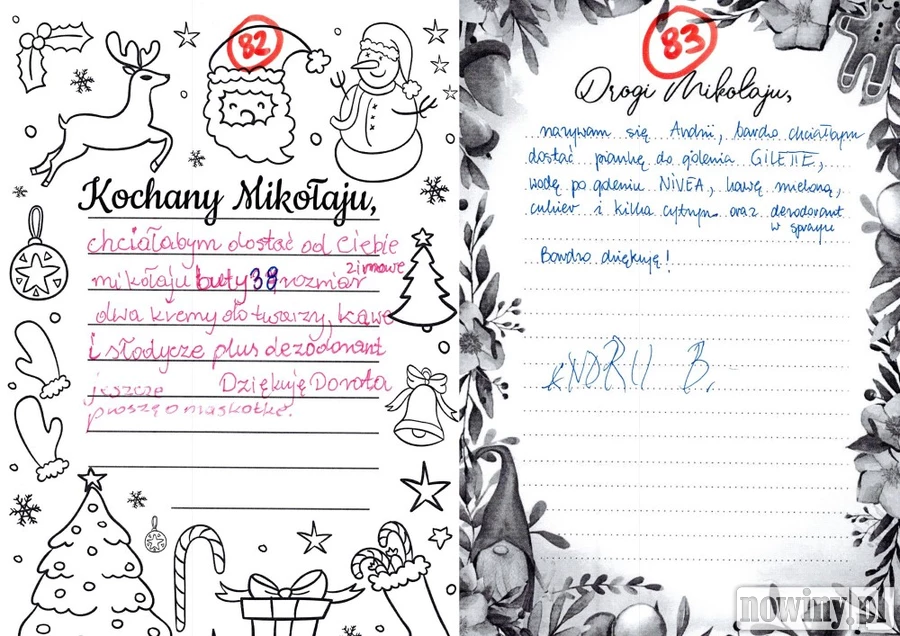 82
Kochany Mikołaju,
chciałabym dostać od Ciebie
zimowe
mikołaju buty 38 rozmiar
dwa kremy do twarzy, kawę
i słodycze plus dezodorant
jeszcze Dziękuję Dorota
proszę o maskotkę.
83
Drogi Mikołaju,
nazywam się Andrii, bardzo chciałbym
dostać piankę do golenia GILETTE,
wodę po goleniu NIVEA, kawę mieloną,
cukier i kilka cytryn oraz dezodorant
w sprayu
Bardzo dziękuję!
ANDRII B.
nowiny.pl